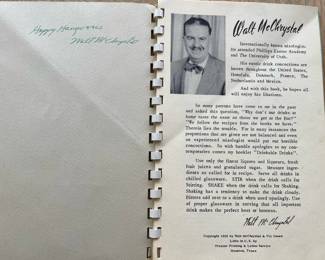 Happy Hangovers
Walt McChrystal
Walt McChrystal
Internationally known mixologist.
He attended Phillips Exeter Academy
and The University of Utah.
His exotic drink concoctions are
known throughout the United States,
Honolulu, Denmark, France, The
Netherlands and Mexico.
And with this book, he hopes all
will enjoy his libations.
So many persons have come to me in the past
and asked this question, "Why don't our drinks at
home taste the same as those we get at the Bar?"
"We follow the recipes from the books we have."
Therein lies the trouble. For in many instances the
proportions that are given are not balanced and even
an experienced mixologist would put out horrible
concoctions. So with humble apologies to my con-
temporaries comes my booklet "Drinkable Drinks".
Use only the finest liquors and liqueurs, fresh
fruit juices and granulated sugar. Measure ingre-
dients as called for in recipe. Serve all drinks in
chilled glassware. STIR when the drink calls for
Stirring. SHAKE when the drink calls for Shaking.
Shaking has a tendency to make the drink cloudy.
Bitters add zest to a drink when used sparingly. Use
of proper glassware in serving that all important
drink makes the perfect host or hostess.
Walt McChrystal
Copyright
by Walt McChrystal &
Litho in U.S. by
Premier Printing & Letter Service
Houston, Texas